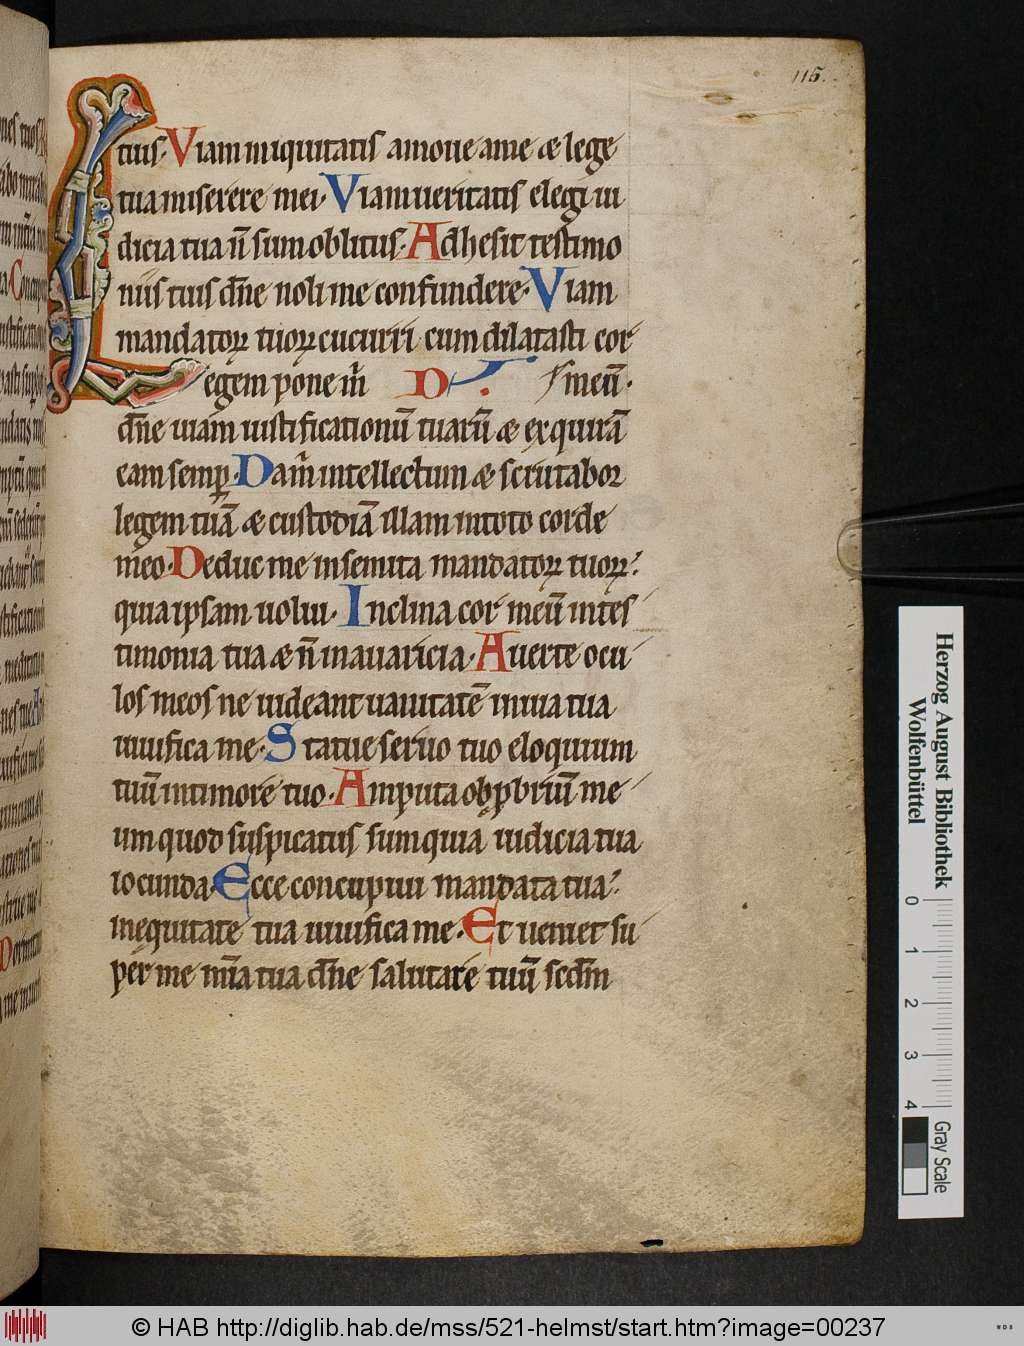 115.
tuis. Viam iniquitatis amoue a me & lege
tua miserere mei. Viam ueritatis elegi iu
dicia tua n̄ sum oblitus. Adhesit testimo
niis tuis dn̄e noli me confundere. Viam
mandatoꝝ tuoꝝ cucurri cum dilatasti cor
Legem pone m̄ D meū.
dn̄e uiam iustificationū tuarū & exquirā
eam semꝑ. Da m̄ intellectum & scrutabor
legem tuā & custodiā illam in toto corde
meo. Deduc me in semita mandatoꝝ tuoꝝ
quia ipsam uolui. Inclina cor meū in tes
timonia tua & n̄ in auaricia. Auerte ocu
los meos ne uideant uanitatē in uia tua
uiuifica me. Statue seruo tuo eloquium
tuū in timore tuo. Amputa obꝓbriū me
um quod suspicatus sum quia iudicia tua
iocunda. Ecce concupiui mandata tua
in equitate tua uiuifica me. Et ueniet su
per me mīa tua dn̄e salutare tuū scdm̄
Herzog August Bibliothek
Wolfenbüttel
0 1 2 3 4
Gray Scale
© HAB http://diglib.hab.de/mss/521-helmst/start.htm?image=00237